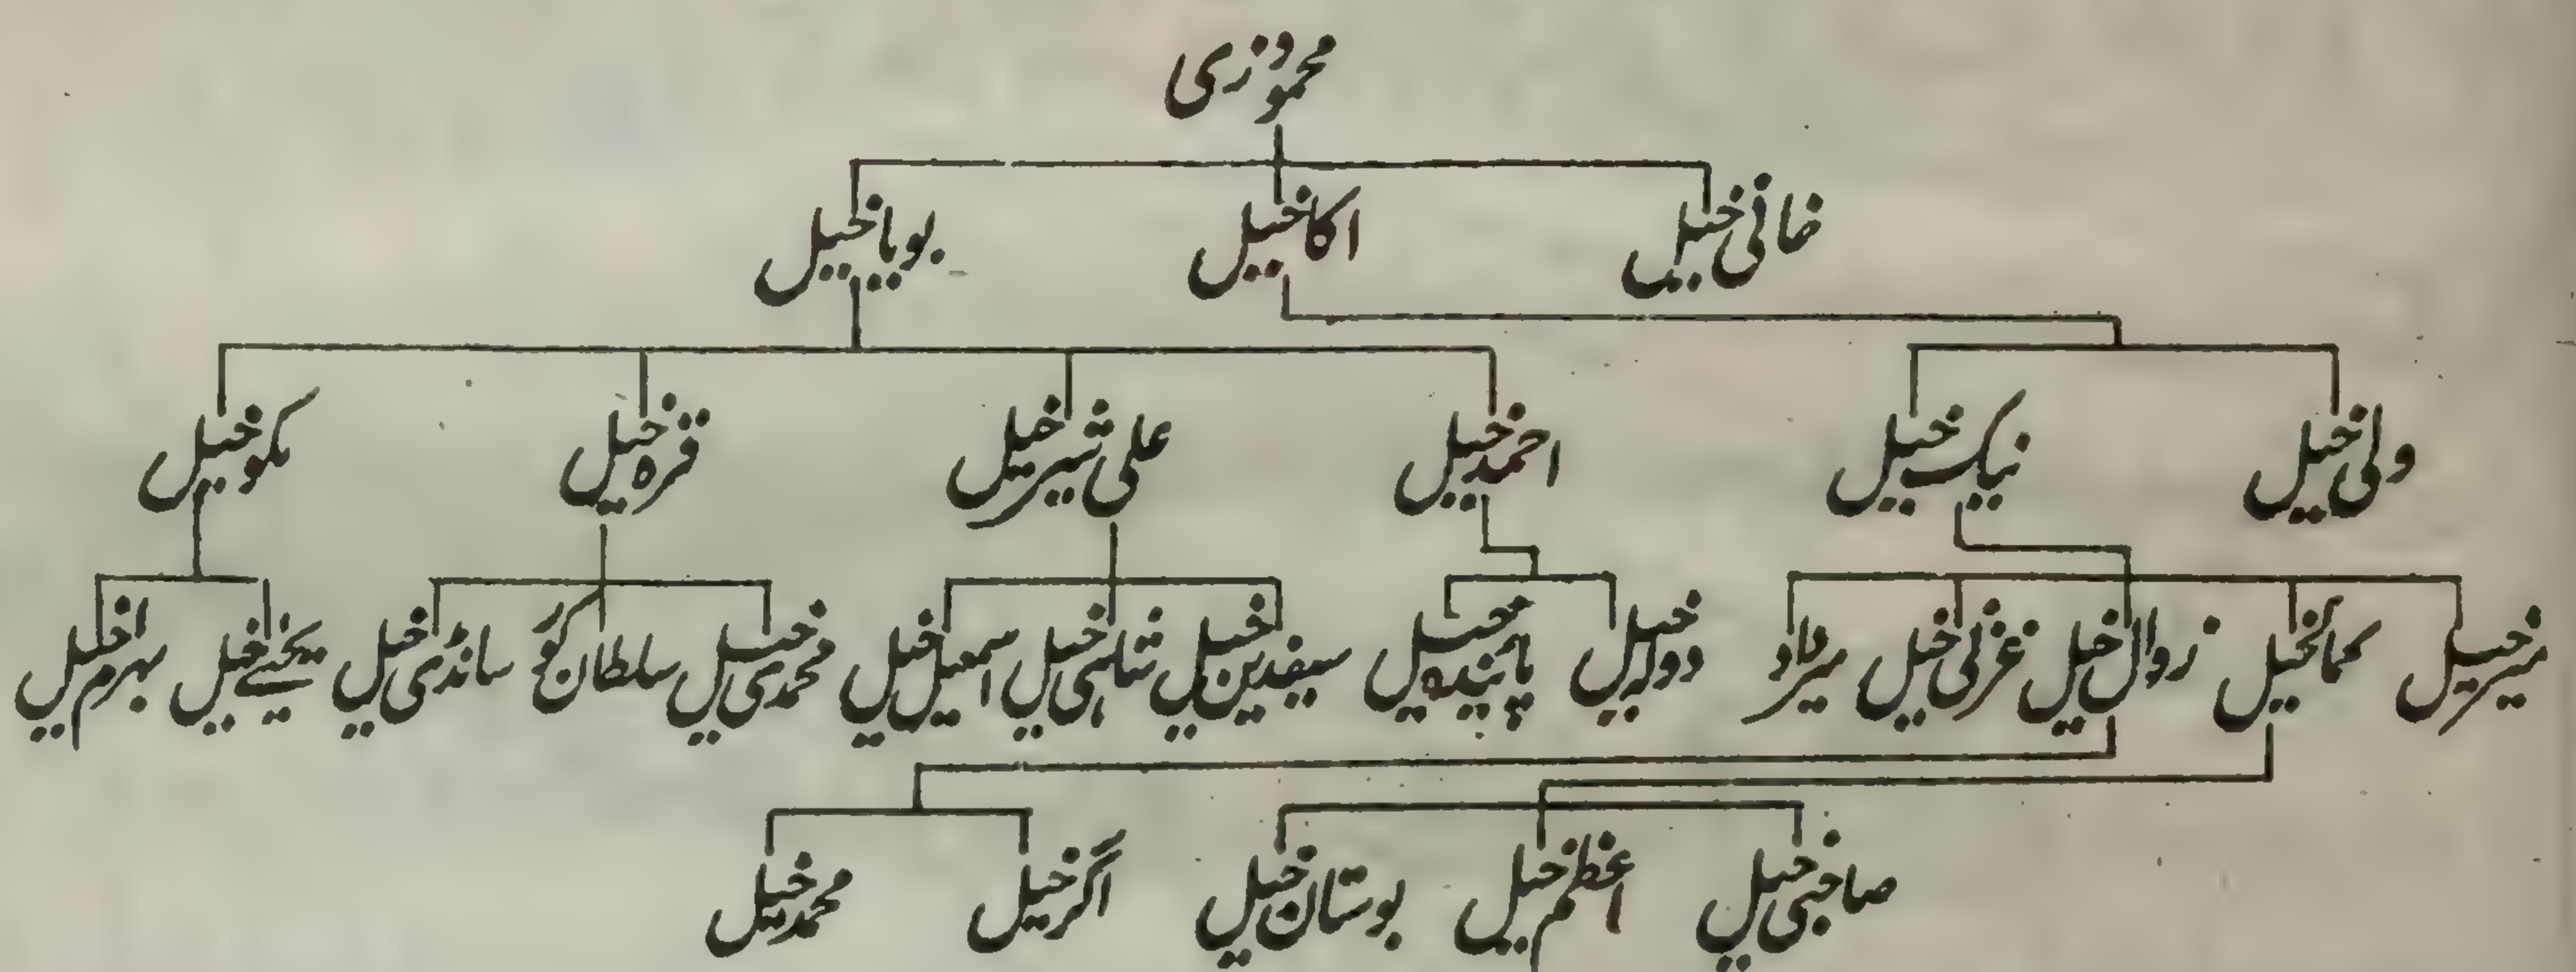 محمودزی
خانی خیل اکاخیل بویاخیل
ولی خیل نیک خیل احمدخیل علی شیرخیل قره خیل مکوخیل
میرخیل کمالخیل زوال خیل غزنی خیل میرداد دولہ خیل پائیندہ خیل سیفدین خیل شاہی خیل اسمعیل خیل محمدی خیل سلطان کو سانڈی خیل یحیے خیل بہرام خیل
صاحبی خیل اعظم خیل بوستان خیل اگرخیل محمدخیل